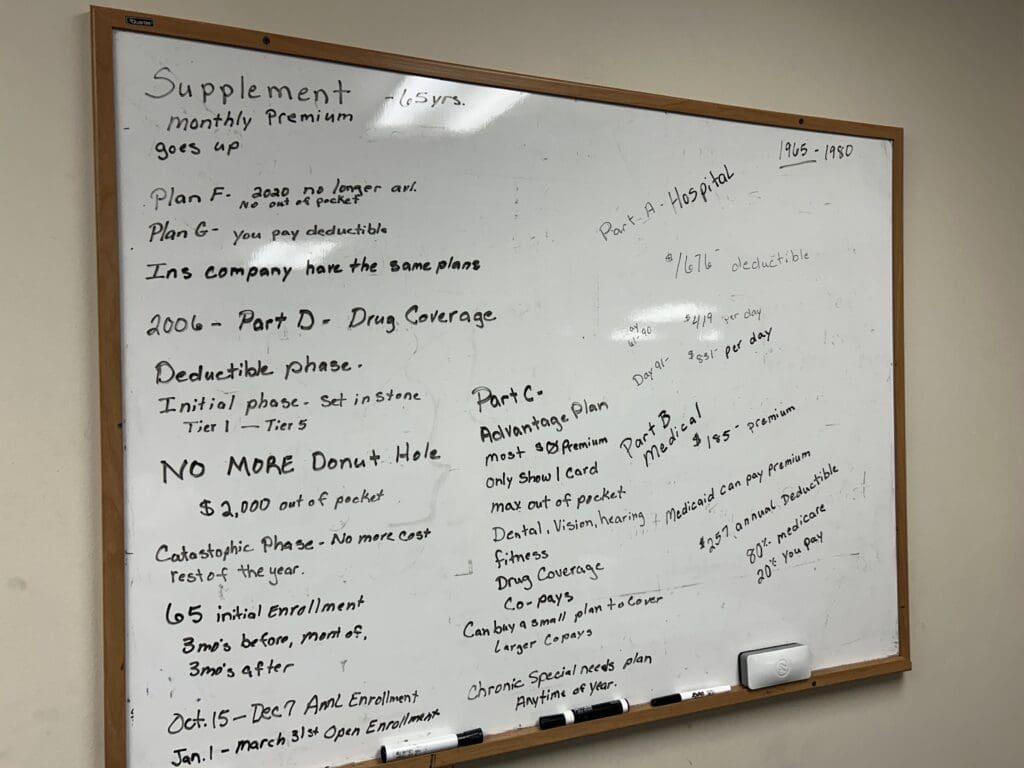 Quartet
Supplement - 65 yrs.
monthly Premium
goes up
Plan F- 2020 no longer avl.
No out of pocket
Plan G- you pay deductible
Ins company have the same plans
2006 - Part D - Drug Coverage
Deductible phase.
Initial phase - Set in Stone
Tier 1 — Tier 5
NO MORE Donut Hole
$2,000 out of pocket
Catastophic Phase - No more cost
rest of the year.
65 initial Enrollment
3mo's before, mont of,
3mo's after
Oct. 15 - Dec 7 Anl Enrollment
Jan. 1 - march 31st Open Enrollment
Part C-
Advantage Plan
most $0 Premium
only Show 1 Card
max out of pocket
Dental, Vision, hearing
fitness
Drug Coverage
Co-pays
Can buy a small plan to cover
Larger Copays
Chronic Special needs plan
Anytime of Year.
1965 - 1980
Part A - Hospital
$1676- deductible
61-90 $419 per day
Day 91- $831- per day
Part B
Medical
$185- premium
Medicaid can pay premium
$257 annual Deductible
80% medicare
20% you pay